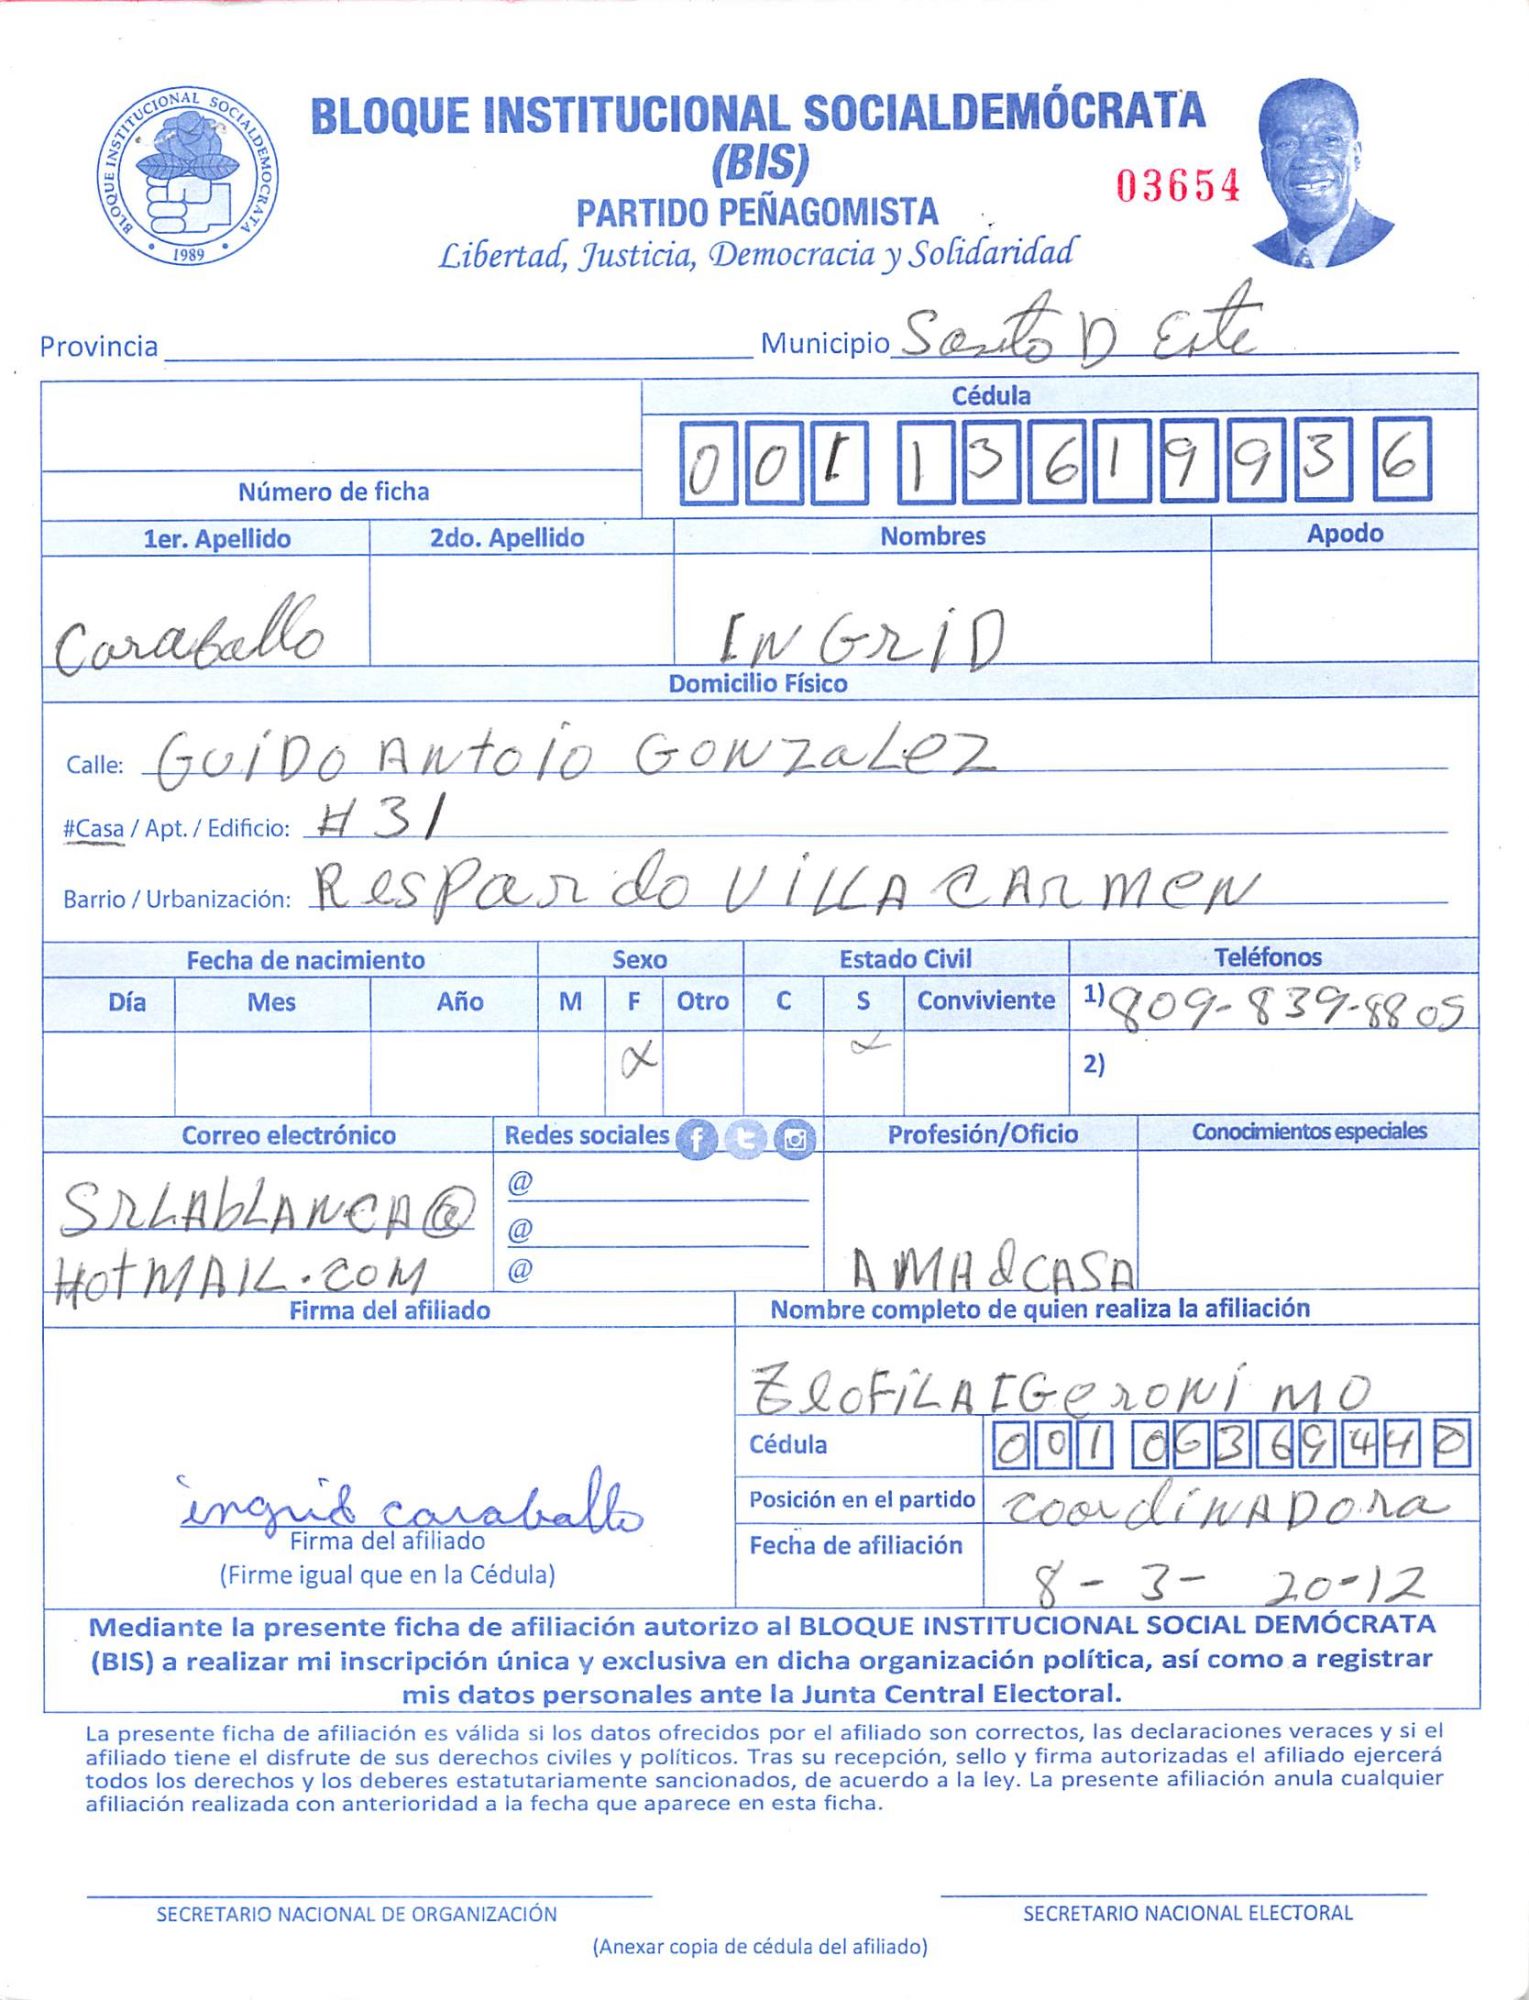 BLOQUE INSTITUCIONAL SOCIALDEMOCRATA
1989
BLOQUE INSTITUCIONAL SOCIALDEMÓCRATA
(BIS)
03654
PARTIDO PEÑAGOMISTA
Libertad, Justicia, Democracia y Solidaridad
Provincia Municipio Santo D Este
Cédula
001 1361993 6
Número de ficha
1er. Apellido 2do. Apellido Nombres Apodo
Caraballo INGRID
Domicilio Físico
Calle: GUIDO ANtoio GONZaLez
#Casa / Apt. / Edificio: # 31
Barrio / Urbanización: ResPardo VILLA CARMEN
Fecha de nacimiento Sexo Estado Civil Teléfonos
Día Mes Año M F Otro C S Conviviente 1) 809-839-8805
x x 2)
Correo electrónico Redes sociales Profesión/Oficio Conocimientos especiales
SRLAbLANCA@ @
@
HOtMAIL.COM @ AMAdCASA
Firma del afiliado Nombre completo de quien realiza la afiliación
GeroNiMO
Cédula 001 0636944 0
ingrid caraballo Posición en el partido CoordiNADora
Firma del afiliado Fecha de afiliación
(Firme igual que en la Cédula) 8-3-20-12
Mediante la presente ficha de afiliación autorizo al BLOQUE INSTITUCIONAL SOCIAL DEMÓCRATA
(BIS) a realizar mi inscripción única y exclusiva en dicha organización política, así como a registrar
mis datos personales ante la Junta Central Electoral.
La presente ficha de afiliación es válida si los datos ofrecidos por el afiliado son correctos, las declaraciones veraces y si el
afiliado tiene el disfrute de sus derechos civiles y políticos. Tras su recepción, sello y firma autorizadas el afiliado ejercerá
todos los derechos y los deberes estatutariamente sancionados, de acuerdo a la ley. La presente afiliación anula cualquier
afiliación realizada con anterioridad a la fecha que aparece en esta ficha.
SECRETARIO NACIONAL DE ORGANIZACIÓN SECRETARIO NACIONAL ELECTORAL
(Anexar copia de cédula del afiliado)